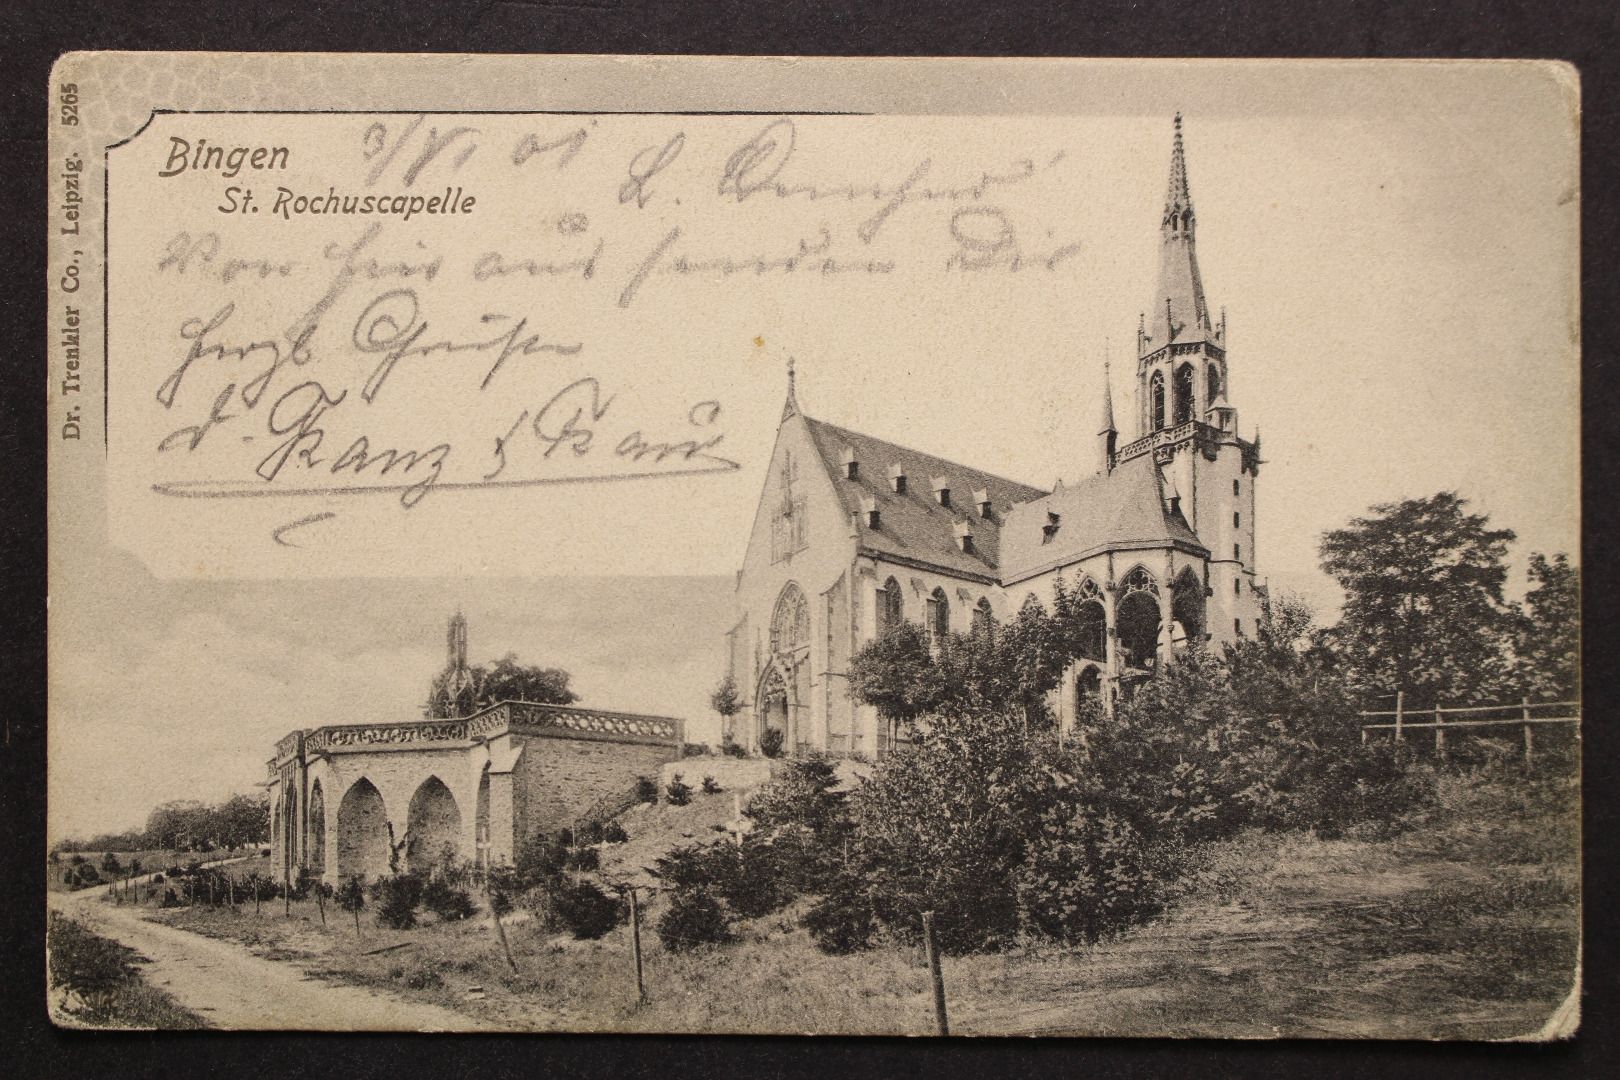 Dr. Trenkler Co., Leipzig. 5265
Bingen
St. Rochuscapelle
01
L.
Von hier aus senden Dir
herzl Grüße
d. Franz & Frau